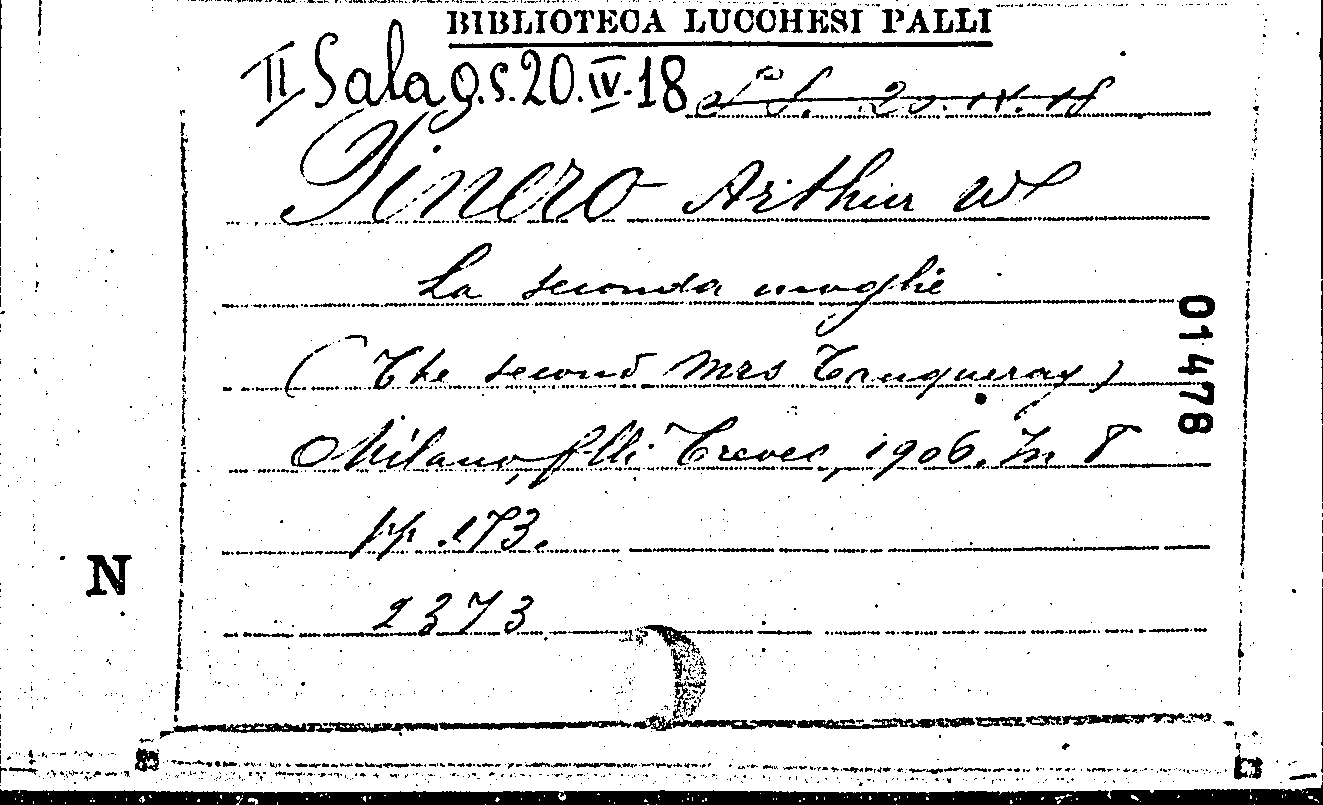 BIBLIOTECA LUCCHESI PALLI
II Sala g.s. 20.IV.18 S. S. 20.IV.18
Pinero Arthur W
La seconda moglie
(The second Mrs Tanqueray)
Milano, flli Treves, 1906. In 8
pp. 173.
2373
N
01478